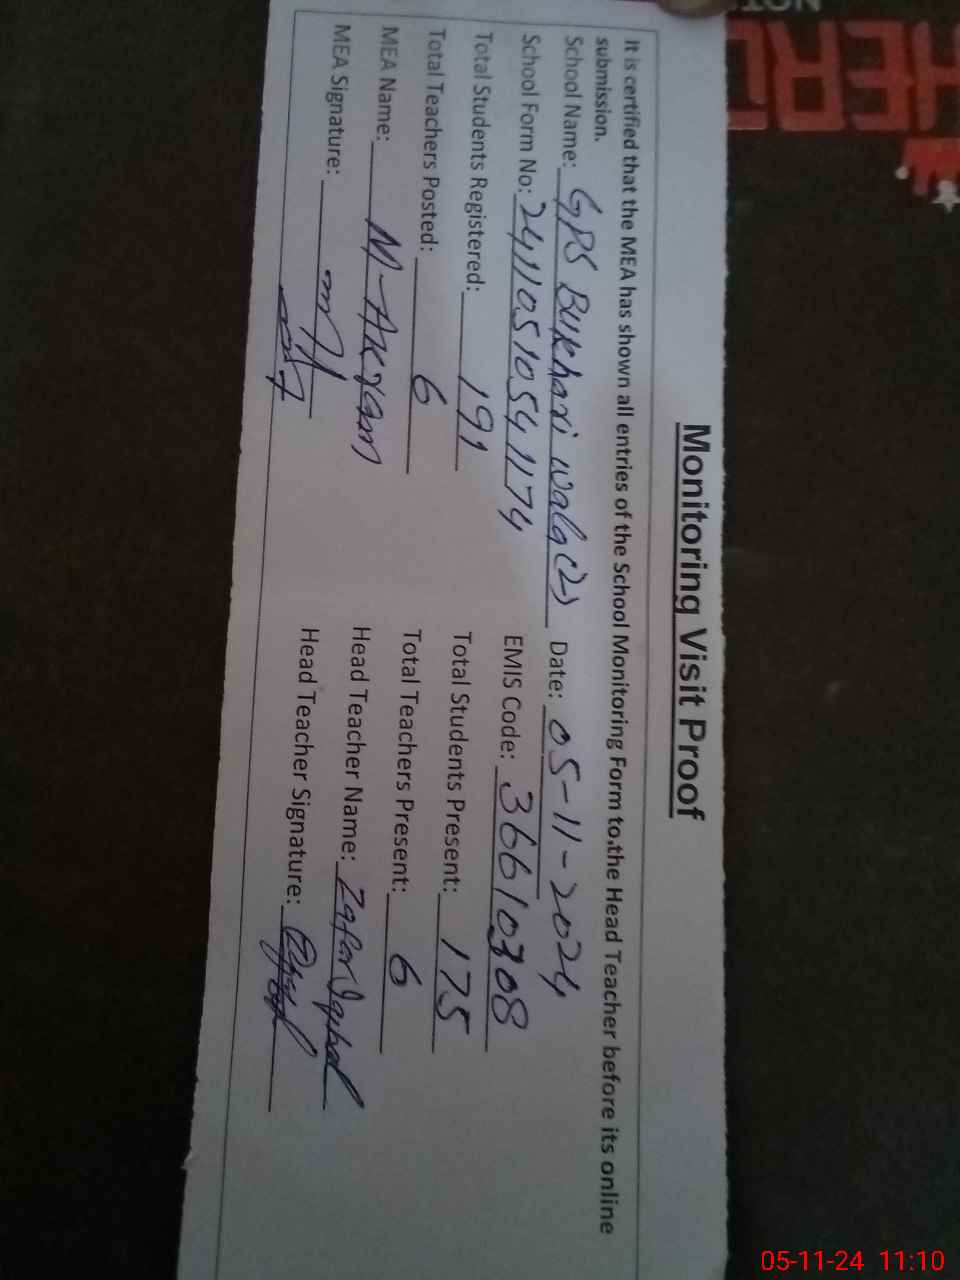 Monitoring Visit Proof
It is certified that the MEA has shown all entries of the School Monitoring Form to the Head Teacher before its online
submission.
School Name: GPS Bukhari wala (2) Date: 05-11-2024
School Form No: 24110510541174 EMIS Code: 36610308
Total Students Registered: 191 Total Students Present: 175
Total Teachers Posted: 6 Total Teachers Present: 6
MEA Name: M-Akram Head Teacher Name: Zafar Iqbal
MEA Signature: Head Teacher Signature:
HERO
05-11-24 11:10